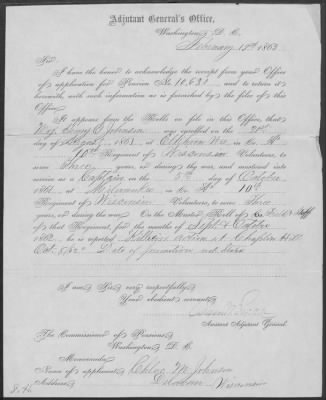 Adjutant General's Office,
Washington D. C.
February 18th 1863
Sir:
I have the honor to acknowledge the receipt from your Office
of application for Pension No. 10,631 and to return it
herewith, with such information as is furnished by the files of this
Office.
It appears from the Rolls on file in this Office, that
Henry O. Johnson was enrolled on the
day of August 1861 at Wis. in Co.
10th Regiment of Wisconsin Volunteers, to
serve Three years, or during the war, and mustered into
service as a Captain on the 5th day of October
1861 at Milwaukee in Co. 10th
Regiment of Wisconsin Volunteers, to serve Three
years, or during the war. On the Muster Roll of Field & Staff
of that Regiment, for the months of Sept & October
1862 he is reported Killed in action at Chaplin Hill
Oct. 8/62 Date of promotion not stated
I am Sir, very respectfully,
Your obedient servant,
Assistant Adjutant General.
The Commissioner of Pensions,
Washington D. C.
Memoranda.
Name of applicant, M Johnson
Address, Wisconsin